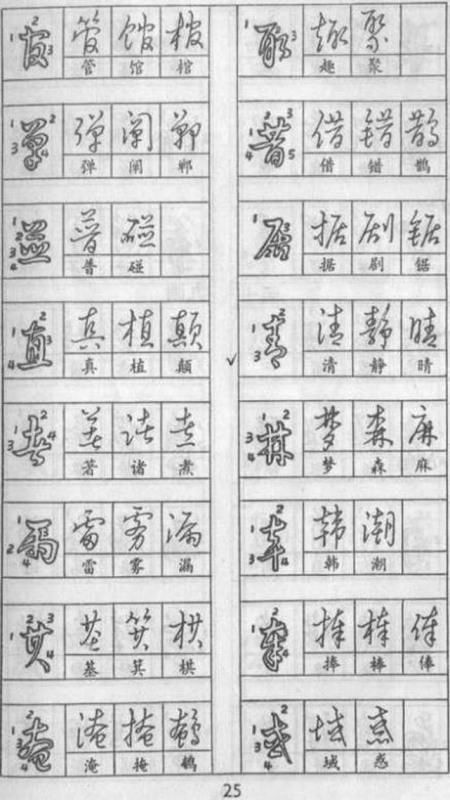 管 馆 棺
趣 聚
弹 阐 郸
借 错 鹊
普 碰
据 剧 锯
真 植 颠
清 静 晴
著 诸 煮
梦 森 麻
雷 雾 漏
韩 潮
基 箕 棋
捧 棒 俸
淹 掩 鹌
域 惑
25